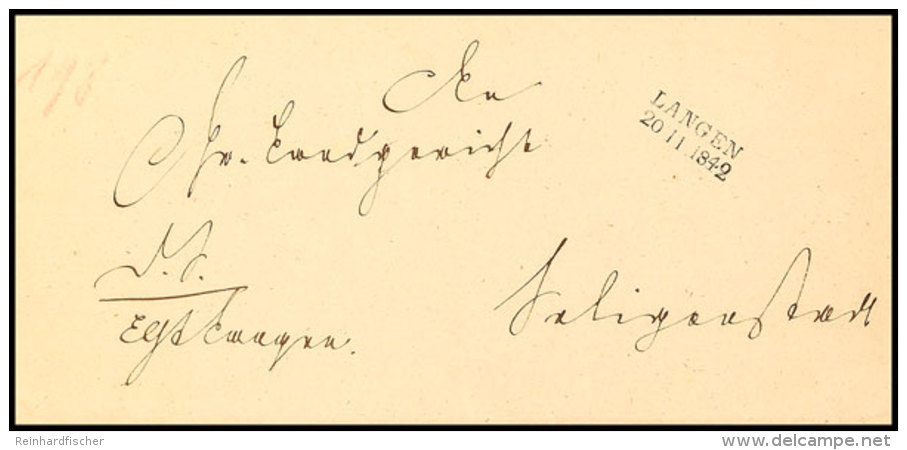 An
Gr. Landgericht
LANGEN
20 11 1842
D. S.
Seligenstadt
Langen.
Reinhardfischer
www.delcampe.net